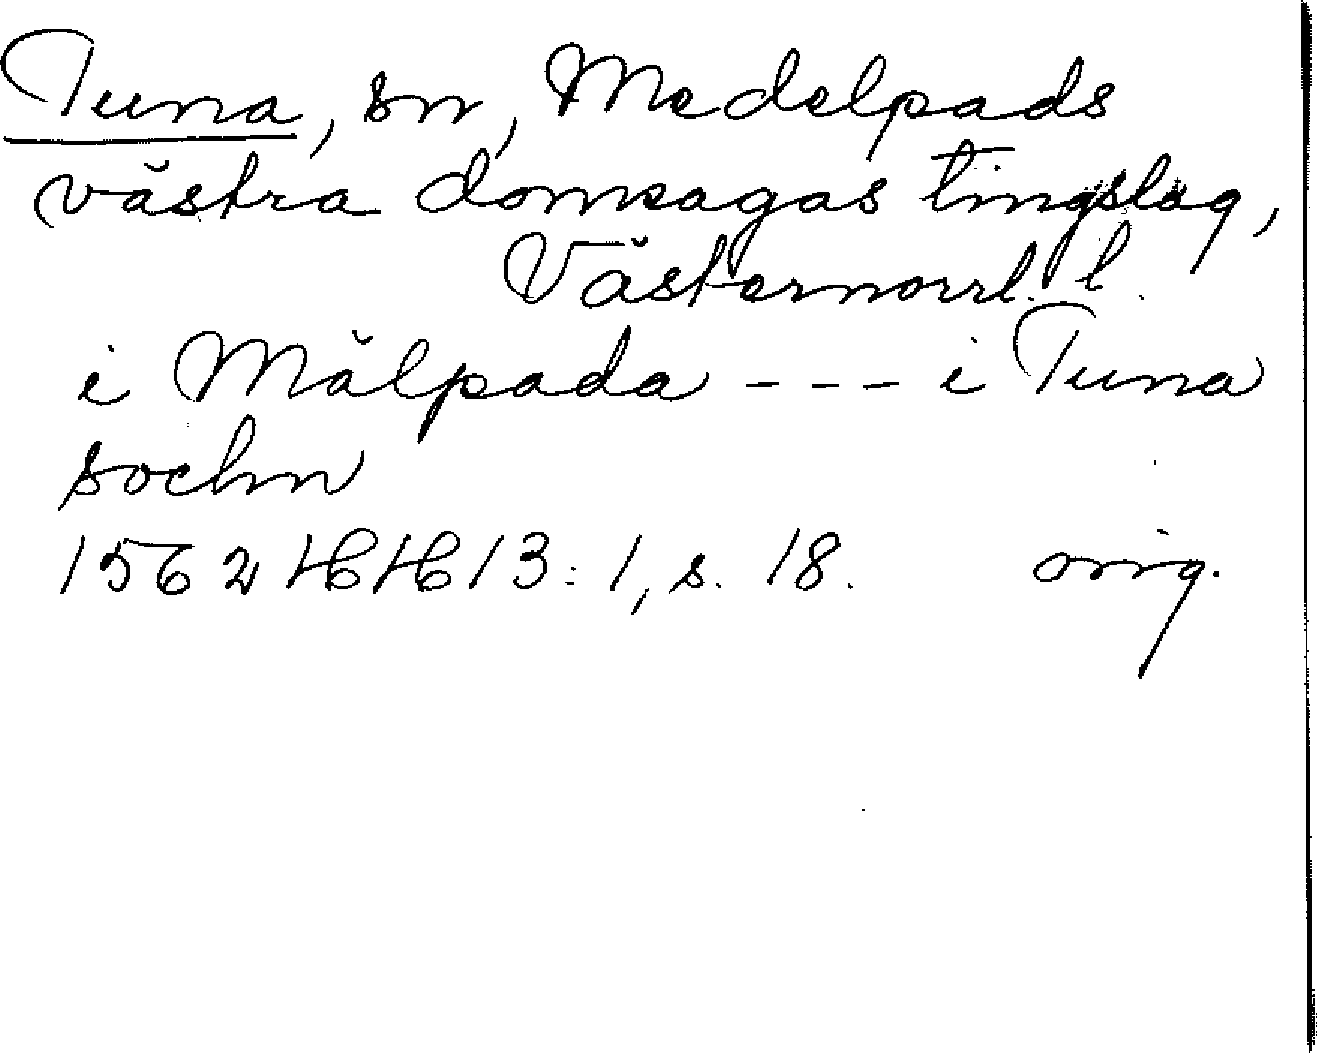 Tuna, sn, Medelpads
västra domsagas tingslag,
Västernorrl. l.
i Mälpada - - - i Tuna
sochn
1562 HH 13:1, s. 18. orig.